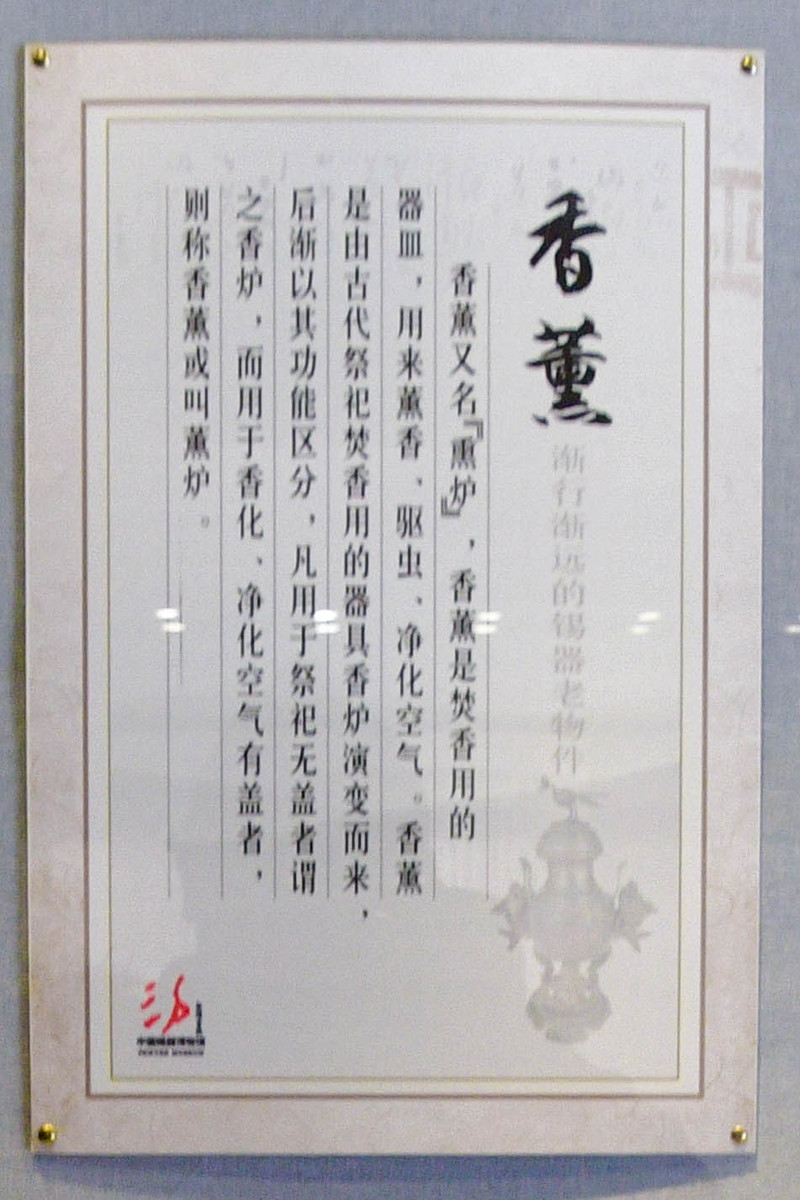 香薰
渐行渐远的锡器老物件
香薰又名『熏炉』，香薰是焚香用的
器皿，用来薰香、驱虫、净化空气。香薰
是由古代祭祀焚香用的器具香炉演变而来，
后渐以其功能区分，凡用于祭祀无盖者谓
之香炉，而用于香化、净化空气有盖者，
则称香薰或叫薰炉。